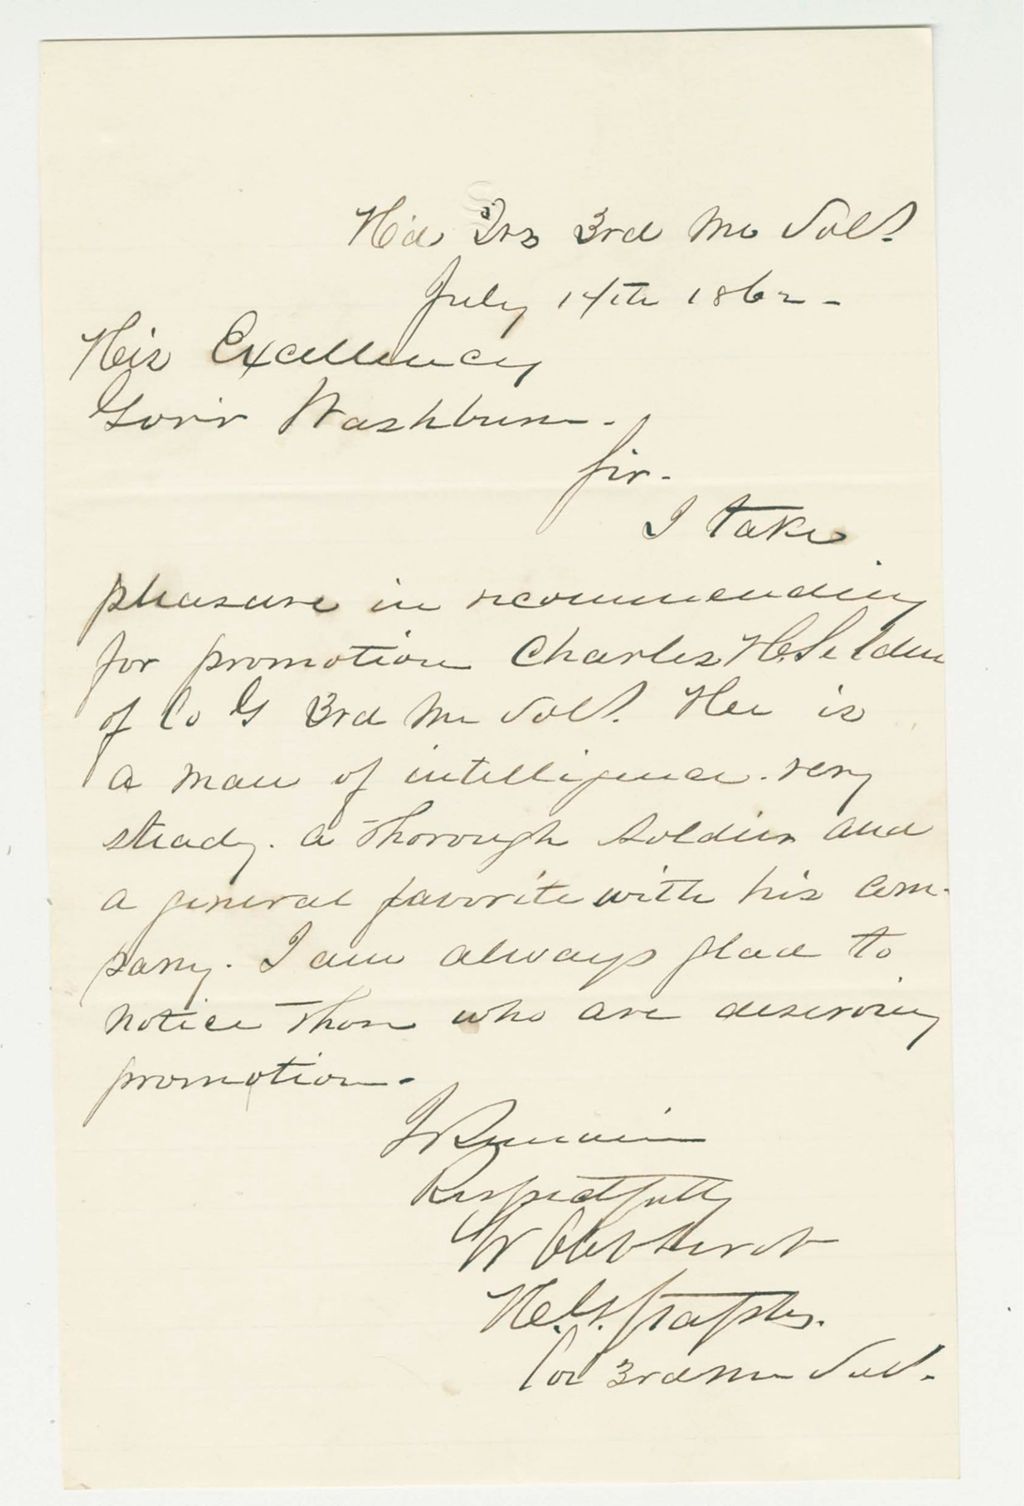 Hd Qrs 3rd Me Vols.
July 14th 1862 -
His Excellency
Gov'r Washburn -
Sir -
I take
pleasure in recommending
for promotion Charles H. Selden
of Co G 3rd Me Vols. Hee is
a man of intelligence. very
steady. a thorough soldier and
a general favorite with his com-
pany. I am always glad to
notice those who are deserving
promotion -
I Remain
Respectfully
Yr Obt Servt
H. G. Staples.
Col 3rd Me Vol.